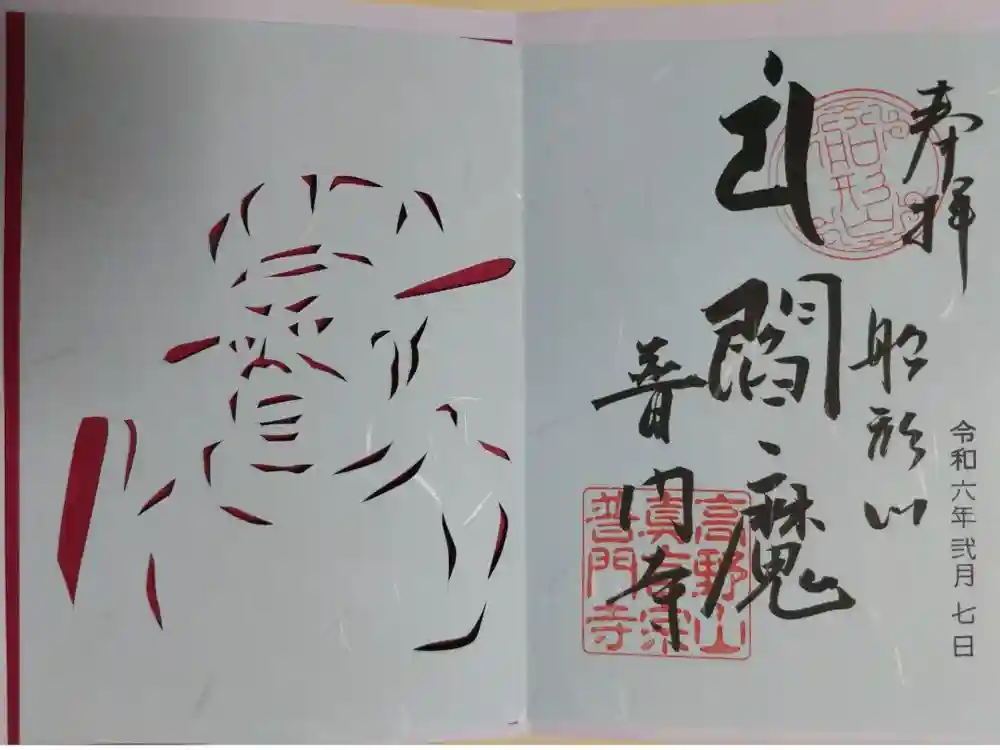 奉拝
令和六年弐月 七日
船形山
船形山
閻魔
普門寺
高野山
真言宗
普門寺